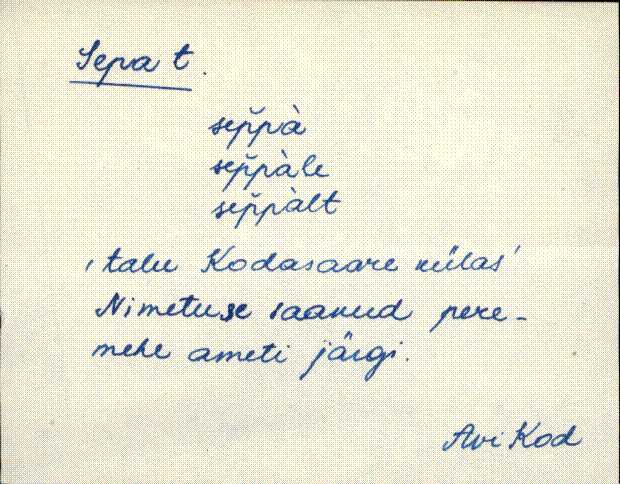 Sepa t.
sep̆pà
sep̆pàle
sep̆pàlt
' talu Kodasaare külas '
Nimetuse saanud pere-
mehe ameti järgi.
Avi Kod